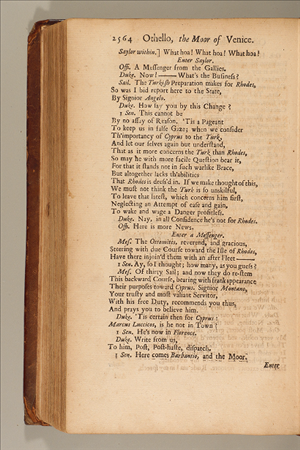 2564 Othello, the Moor of Venice.
Saylor within.] What hoa! What hoa! What hoa!
Enter Saylor.
Offi. A Messenger from the Gallies.
Duke. Now! —— What's the Business?
Sail. The Turkish Preparation makes for Rhodes,
So was I bid report here to the State,
By Signior Angelo.
Duke. How say you by this Change?
1 Sen. This cannot be
By no assay of Reason. 'Tis a Pageant
To keep us in false Gaze; when we consider
Th'importancy of Cyprus to the Turk,
And let our selves again but understand,
That as it more concerns the Turk than Rhodes,
So may he with more facile Question bear it,
For that it stands not in such warlike Brace,
But altogether lacks th'abilities
That Rhodes is dress'd in. If we make thought of this,
We must not think the Turk is so unskilful,
To leave that latest, which concerns him first,
Neglecting an Attempt of ease and gain,
To wake and wage a Danger profitless.
Duke. Nay, in all Confidence he's not for Rhodes.
Offi. Here is more News.
Enter a Messenger.
Mes. The Ottomites, reverend, and gracious,
Steering with due Course toward the Isle of Rhodes,
Have there injoin'd them with an after Fleet ——
1 Sen. Ay, so I thought; how many, as you guess?
Mes. Of thirty Sail; and now they do re-stem
This backward Course, bearing with frank appearance
Their purposes toward Cyprus. Signior Montano,
Your trusty and most valiant Servitor,
With his free Duty, recommends you thus,
And prays you to believe him.
Duke. 'Tis certain then for Cyprus:
Marcus Luccicos, is he not in Town?
1 Sen. He's now in Florence.
Duke. Write from us,
To him, Post, Post-haste, dispatch.
1 Sen. Here comes Barbantio, and the Moor.
Enter